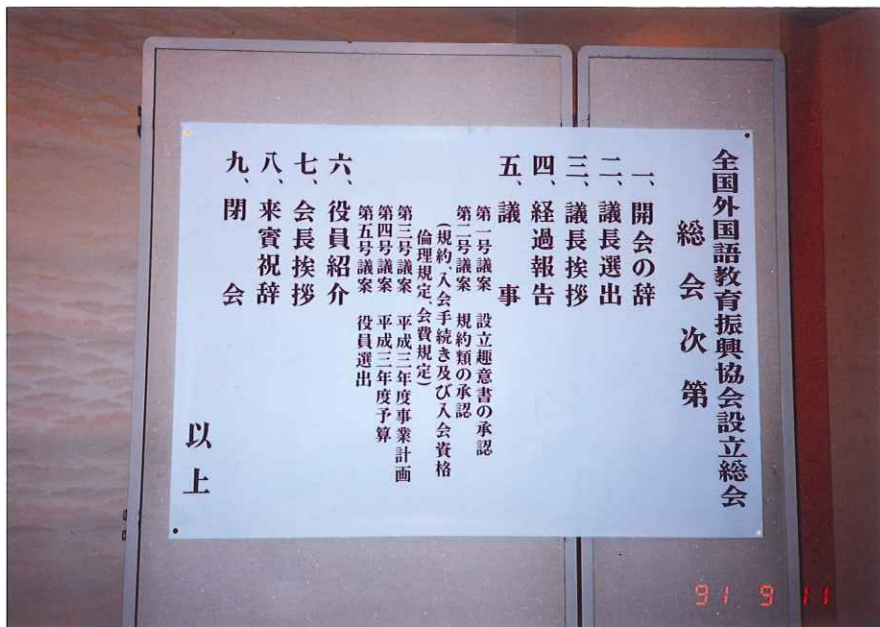 全国外国語教育振興協会設立総会
総会次第
一、開会の辞
二、議長選出
三、議長挨拶
四、経過報告
五、議事
第一号議案 設立趣意書の承認
第二号議案 規約類の承認
(規約、入会手続き及び入会資格
倫理規定、会費規定)
第三号議案 平成三年度事業計画
第四号議案 平成三年度予算
第五号議案 役員選出
六、役員紹介
七、会長挨拶
八、来賓祝辞
九、閉会
以上
91 9 11